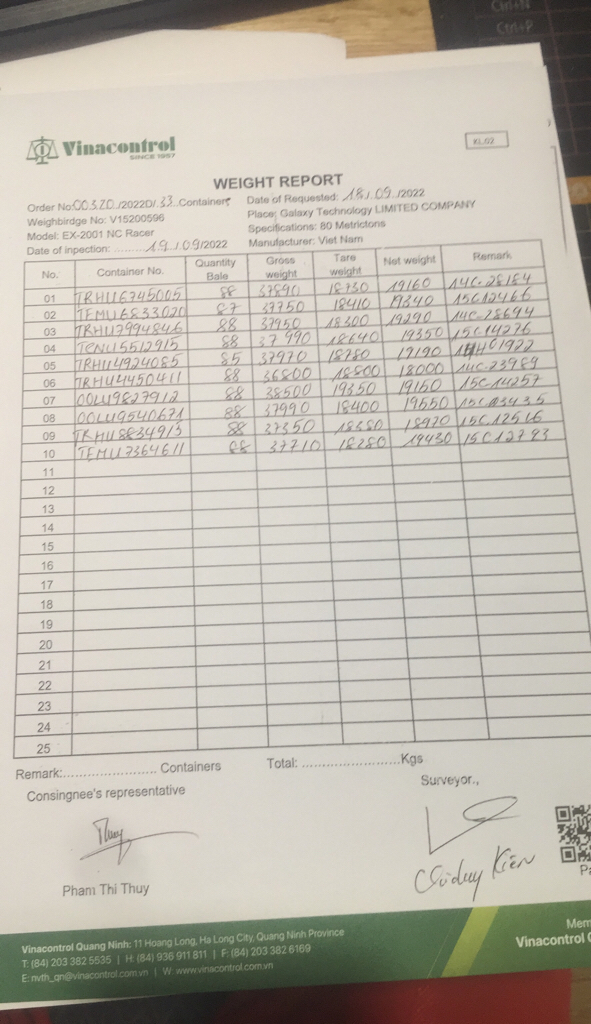 Ctrl+N
Ctrl+P
Vinacontrol
SINCE 1957
KL.02
WEIGHT REPORT
Order No:00320/2022D/.33..Containers Date of Requested: 18/09/2022
Weighbirdge No: V15200596 Place: Galaxy Technology LIMITED COMPANY
Model: EX-2001 NC Racer Specifications: 80 Metrictons
Date of inpection: ..........19/09/2022 Manufacturer: Viet Nam
No. Container No. Quantity Bale Gross weight Tare weight Net weight Remark
01 TRHU6745005 88 37890 18730 19160 14C-28184
02 TEMU6833020 87 37750 18410 19340 15C12466
03 TRHU7994846 88 37950 18300 19290 14C-28694
04 TCNU5512915 88 37990 18640 19350 15C14276
05 TRHU4924085 85 37970 18780 19190 01922
06 TRHU4450411 88 36800 18800 18000 14C-23989
07 OOLU9827912 88 38500 19350 19150 15C14257
08 OOLU9540671 88 37990 18400 19550 15C03435
09 TRHU8834913 88 37350 18380 18970 15C12516
10 TEMU7364611 88 37710 18280 19430 15C12793
11
12
13
14
15
16
17
18
19
20
21
22
23
24
25
Remark:........................ Containers Total: ........................Kgs
Consingnee's representative Surveyor.,
Thuy
Pham Thi Thuy
Chu duy Kiên
Vinacontrol Quang Ninh: 11 Hoang Long, Ha Long City, Quang Ninh Province
T: (84) 203 382 5535 | H: (84) 936 911 811 | F: (84) 203 382 6169
E: nvth_qn@vinacontrol.com.vn | W: www.vinacontrol.com.vn
Mem
Vinacontrol